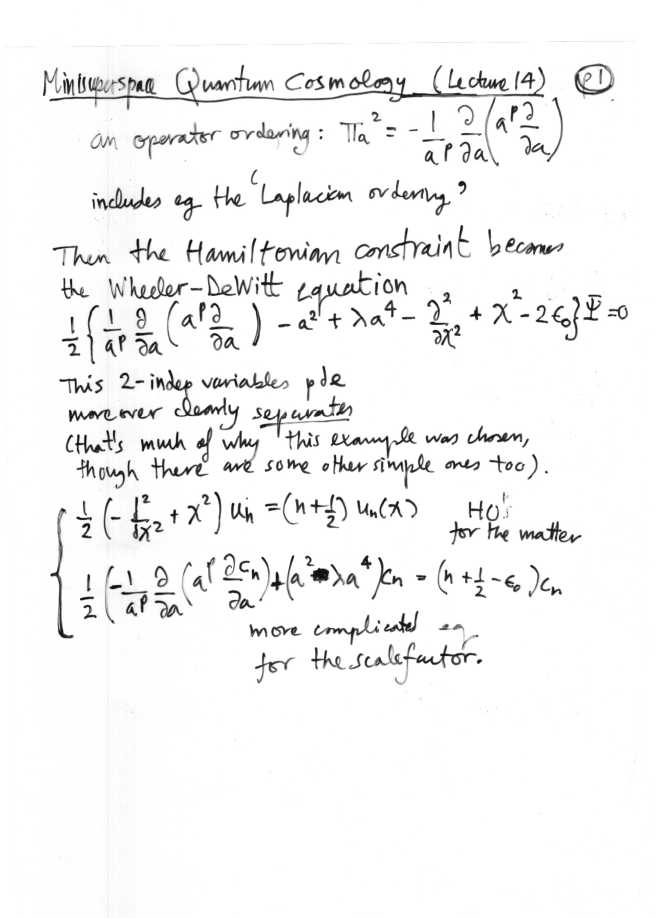 Minisuperspace Quantum Cosmology (Lecture 14) p1
an operator ordering: Πa² = - 1/a^p ∂/∂a (a^p ∂/∂a)
includes eg the 'Laplacian ordering'
Then the Hamiltonian constraint becomes
the Wheeler-DeWitt equation
1/2 { 1/a^p ∂/∂a (a^p ∂/∂a) - a² + λa⁴ - ∂²/∂χ² + χ² - 2ε₀ } Ψ = 0
This 2-indep variables pde
moreover clearly separates
(that's much of why this example was chosen,
though there are some other simple ones too).
1/2 (- d²/dχ² + χ²) un = (n + 1/2) un(χ) HO!
for the matter
1/2 (-1/a^p ∂/∂a (a^p ∂cn/∂a) + (a² - λa⁴) cn = (n + 1/2 - ε₀) cn
more complicated eq
for the scalefactor.